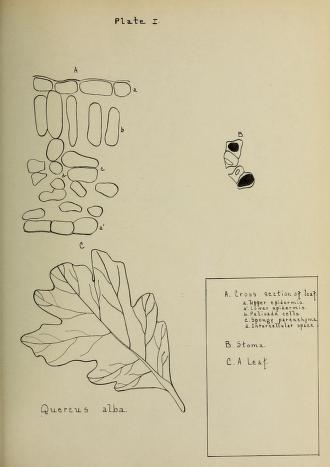 Plate I
A
a
b
c
d
a'
B
C
A. Cross section of leaf
a. Upper epidermis
a'. Lower epidermis
b. Palisade cells
c. Sponge parenchyma
d. Intercellular space
B. Stoma
C. A Leaf.
Quercus alba.